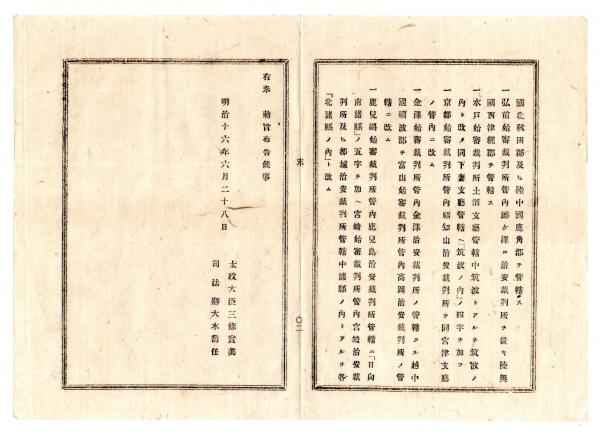 國北秋田郡及ヒ陸中國鹿角郡ヲ管轄ス
一弘前始審裁判所管內鰺ケ澤ニ治安裁判所ヲ置キ陸奧
國西津輕郡ヲ管轄ス
一水戶始審裁判所土浦支廳管轄中筑波トアルヲ筑波ノ
內ト改メ同下妻支廳管轄ヘ「筑波ノ內」ノ四字ヲ加フ
一京都始審裁判所管內福知山治安裁判所ヲ同宮津支廳
ノ管內ニ改ム
一金澤始審裁判所管內金澤治安裁判所ノ管轄タル越中
國礪波郡ヲ富山始審裁判所管內高岡治安裁判所ノ管
轄ニ改ム
一鹿兒島始審裁判所管內鹿兒島治安裁判所管轄ニ「日向
南諸縣」ノ五字ヲ加ヘ宮崎始審裁判所管內宮崎治安裁
判所及ヒ都城治安裁判所管轄中諸縣ノ內トアルヲ各
「北諸縣ノ內」ト改ム
右奉 勅旨布告候事
明治十六年六月二十八日
太政大臣三條實美
司法卿大木喬任